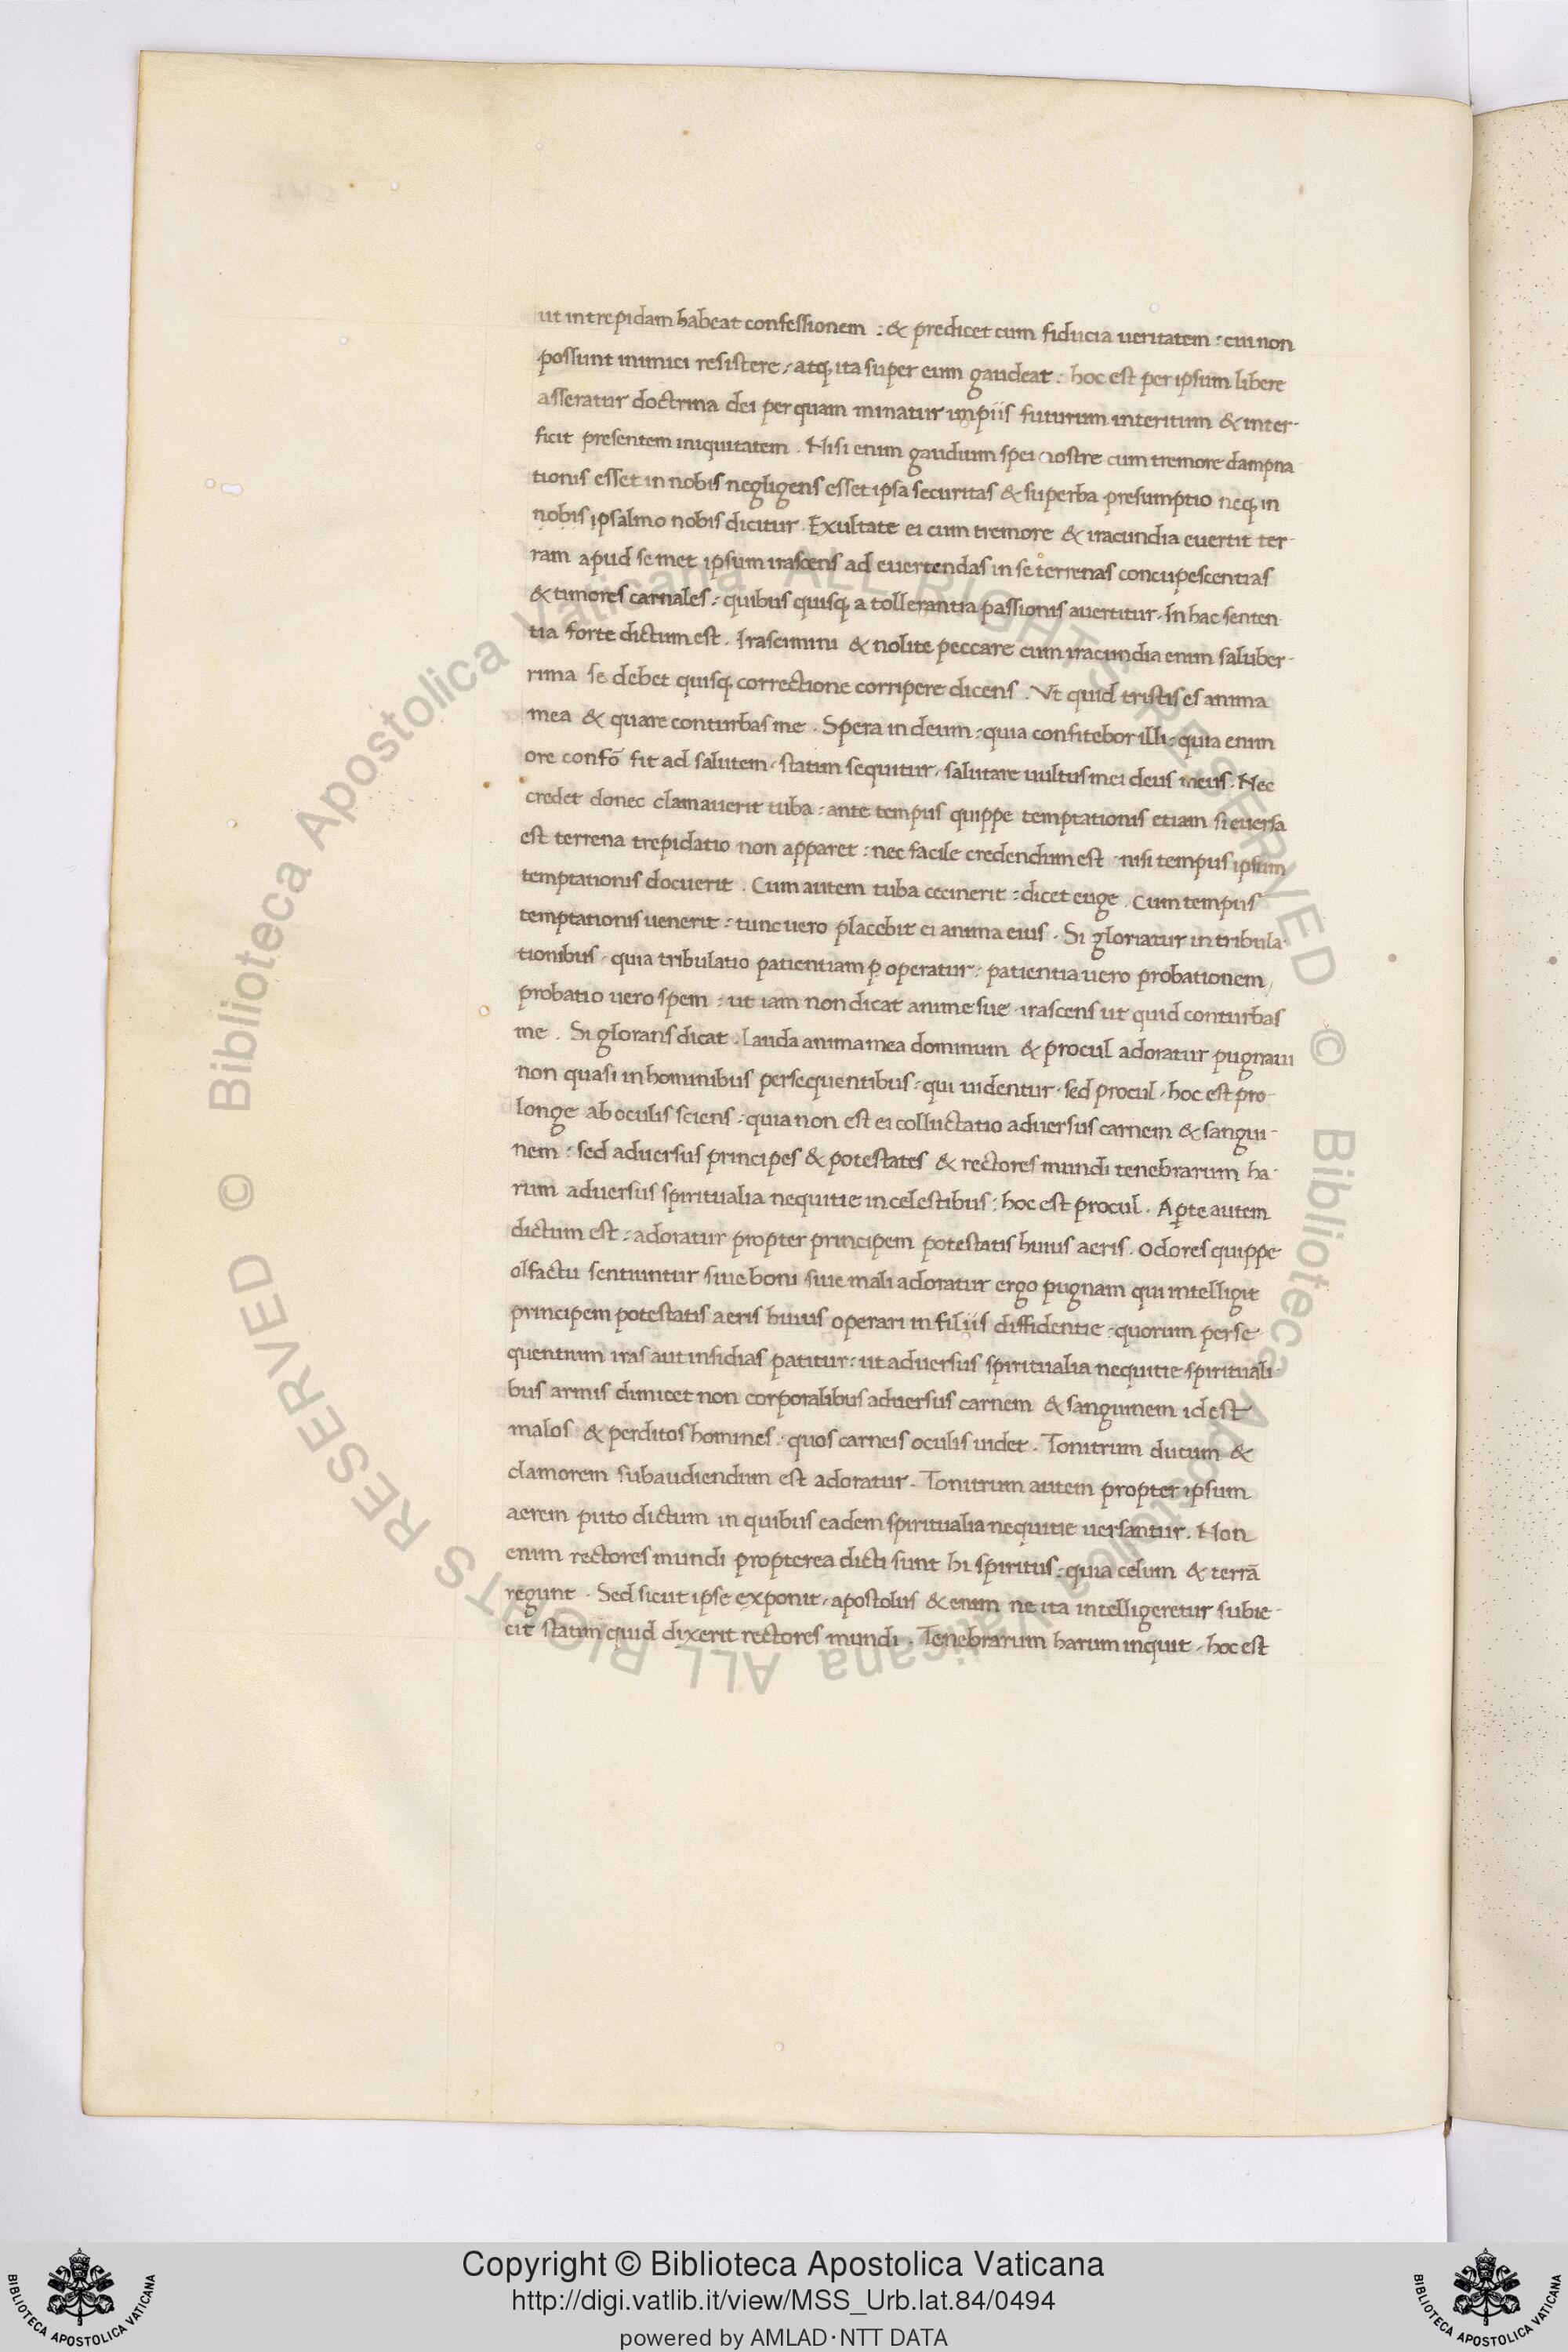 ut intrepidam habeat confessionem : & predicet cum fiducia ueritatem : cui non
possunt inimici resistere , atq; ita super eum gaudeat : hoc est per ipsum libere
asseratur doctrina dei per quam minatur impiis futurum interitum & inter-
ficit presentem iniquitatem . Nisi enim gaudium spei nostre cum tremore dampna
tionis esset in nobis negligens esset ipsa securitas & superba presumptio neq; in
nobis ipsalmo nobis dicitur . Exultate ei cum tremore & iracundia euertit ter-
ram apud semet ipsum irascens ad euertendas in se terrenas concupescentias
& timores carnales : quibus quisq; a tollerantia passionis auertitur . In hac senten
tia forte dictum est . Irascimini & nolite peccare cum iracundia enim saluber-
rima se debet quisq; correctione corripere dicens . Vt quid tristis es anima
mea & quare conturbas me . Spera in deum : quia confitebor illi : quia enim
ore confō fit ad salutem . statim sequitur . salutare uultus mei deus meus . Nec
credet donec clamauerit tuba : ante tempus quippe temptationis etiam si euersa
est terrena trepidatio non apparet : nec facile credendum est . nisi tempus ipsum
temptationis docuerit . Cum autem tuba cecinerit : dicet euge . Cum tempus
temptationis uenerit : tunc uero placebit ei anima eius . Si gloriatur in tribula-
tionibus . quia tribulatio patientiam ꝑ operatur : patientia uero probationem ,
probatio uero spem : ut iam non dicat anime sue . irascens ut quid conturbas
me . Si glorans dicat . lauda anima mea dominum & procul adoratur pugnam
non quasi in hominibus persequentibus : qui uidentur . sed procul . hoc est pro-
longe ab oculis sciens : quia non est ei colluctatio aduersus carnem & sangui-
nem : sed aduersus principes & potestates & rectores mundi tenebrarum ha-
rum aduersus spiritualia nequitie in celestibus : hoc est procul . Aꝑte autem
dictum est : adoratur propter principem potestatis huius aeris . Odores quippe
olfactu sentiuntur siue boni siue mali adoratur ergo pugnam qui intelligit
principem potestatis aeris huius operari in filiis diffidentie : quorum perse
quentium iras aut insidias patitur : ut aduersus spiritualia nequitie spirituali
bus armis dimicet non corporalibus aduersus carnem & sanguinem id est
malos & perditos homines : quos carneis oculis uidet . Tonitrum ducum &
clamorem subaudiendum est adoratur . Tonitrum autem propter ipsum
aerem puto dictum in quibus eadem spiritualia nequitie uersantur . Non
enim rectores mundi propterea dicti sunt hi spiritus : quia celum & terrā
regunt . Sed sicut ipse exponit . apostolus & enim ne ita intelligeretur subie-
cit statim quid dixerit rectores mundi . Tenebrarum harum inquit , hoc est
© Biblioteca Apostolica Vaticana ALL RIGHTS RESERVED © Biblioteca Apostolica Vaticana ALL RIGHTS RESERVED
Copyright © Biblioteca Apostolica Vaticana
http://digi.vatlib.it/view/MSS_Urb.lat.84/0494
powered by AMLAD·NTT DATA
BIBLIOTECA APOSTOLICA VATICANA
BIBLIOTECA APOSTOLICA VATICANA